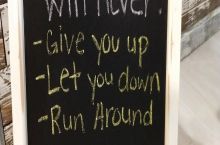 will never:
-Give you up
-Let you down
-Run Around